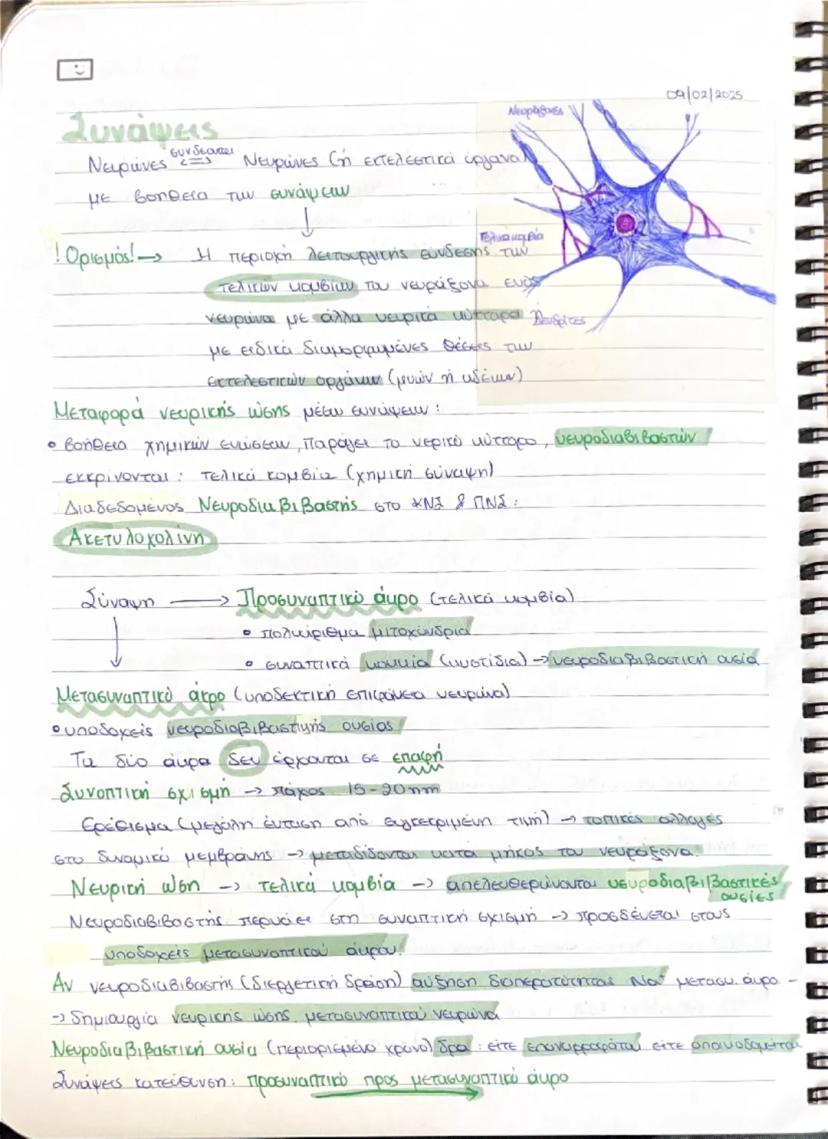 09/02/2025
Συνάψεις
Νευρώνες συνδέονται Νευρώνες (ή εκτελεστικά όργανα)
με βοήθεια των συνάψεων
!Ορισμός!→ Η περιοχή λειτουργικής σύνδεσης των
τελικών κομβίων του νευράξονα ενός
νευρώνα με άλλα νευρικά κύτταρα ή
με ειδικά διαμορφωμένες θέσεις των
εκτελεστικών οργάνων (μυών ή αδένων)
Νευράξονες
Τελικά κομβία
Δενδρίτες
Μεταφορά νευρικής ώσης μέσω συνάψεων:
• βοήθεια χημικών ενώσεων, παράγει το νερικό κύτταρο, νευροδιαβιβαστών
εκκρίνονται: τελικά κομβία (χημική σύναψη)
Διαδεδομένος Νευροδιαβιβαστής στο ΚΝΣ & ΠΝΣ:
Ακετυλοχολίνη
Σύναψη → Προσυναπτικό άκρο (τελικά κομβία)
• πολυάριθμα μιτοχόνδρια
• συναπτικά κομβία (κυστίδια) → νευροδιαβιβαστική ουσία
Μετασυναπτικό άκρο (υποδεκτική επιφάνεια νευρώνα)
• υποδοχείς νευροδιαβιβαστικής ουσίας
Τα δύο άκρα δεν έρχονται σε επαφή
Συνοπτική σχισμή → πάχος 15-20nm
Ερέθισμα (μεγάλη ένταση από συγκεκριμένη τιμή) → τοπικές αλλαγές
στο δυναμικό μεμβράνης → μεταδίδονται κατά μήκος του νευράξονα.
Νευρική ώση → τελικά κομβία → απελευθερώνονται νευροδιαβιβαστικές
ουσίες
Νευροδιαβιβαστής περνάει στη συναπτική σχισμή → προσδένεται στους
υποδοχείς μετασυναπτικού άκρου.
Αν νευροδιαβιβαστής (διεργετική δράση) αύξηση διαπερατότητας Na⁺ μετασυ. άκρο -
→ δημιουργία νευρικής ώσης μετασυναπτικού νευρώνα
Νευροδιαβιβαστική ουσία (περιορισμένο χρόνο) δρα: είτε επαναρροφάται είτε αποικοδομείται
Συνάψεις κατεύθυνση: προσυναπτικό προς μετασυναπτικό άκρο